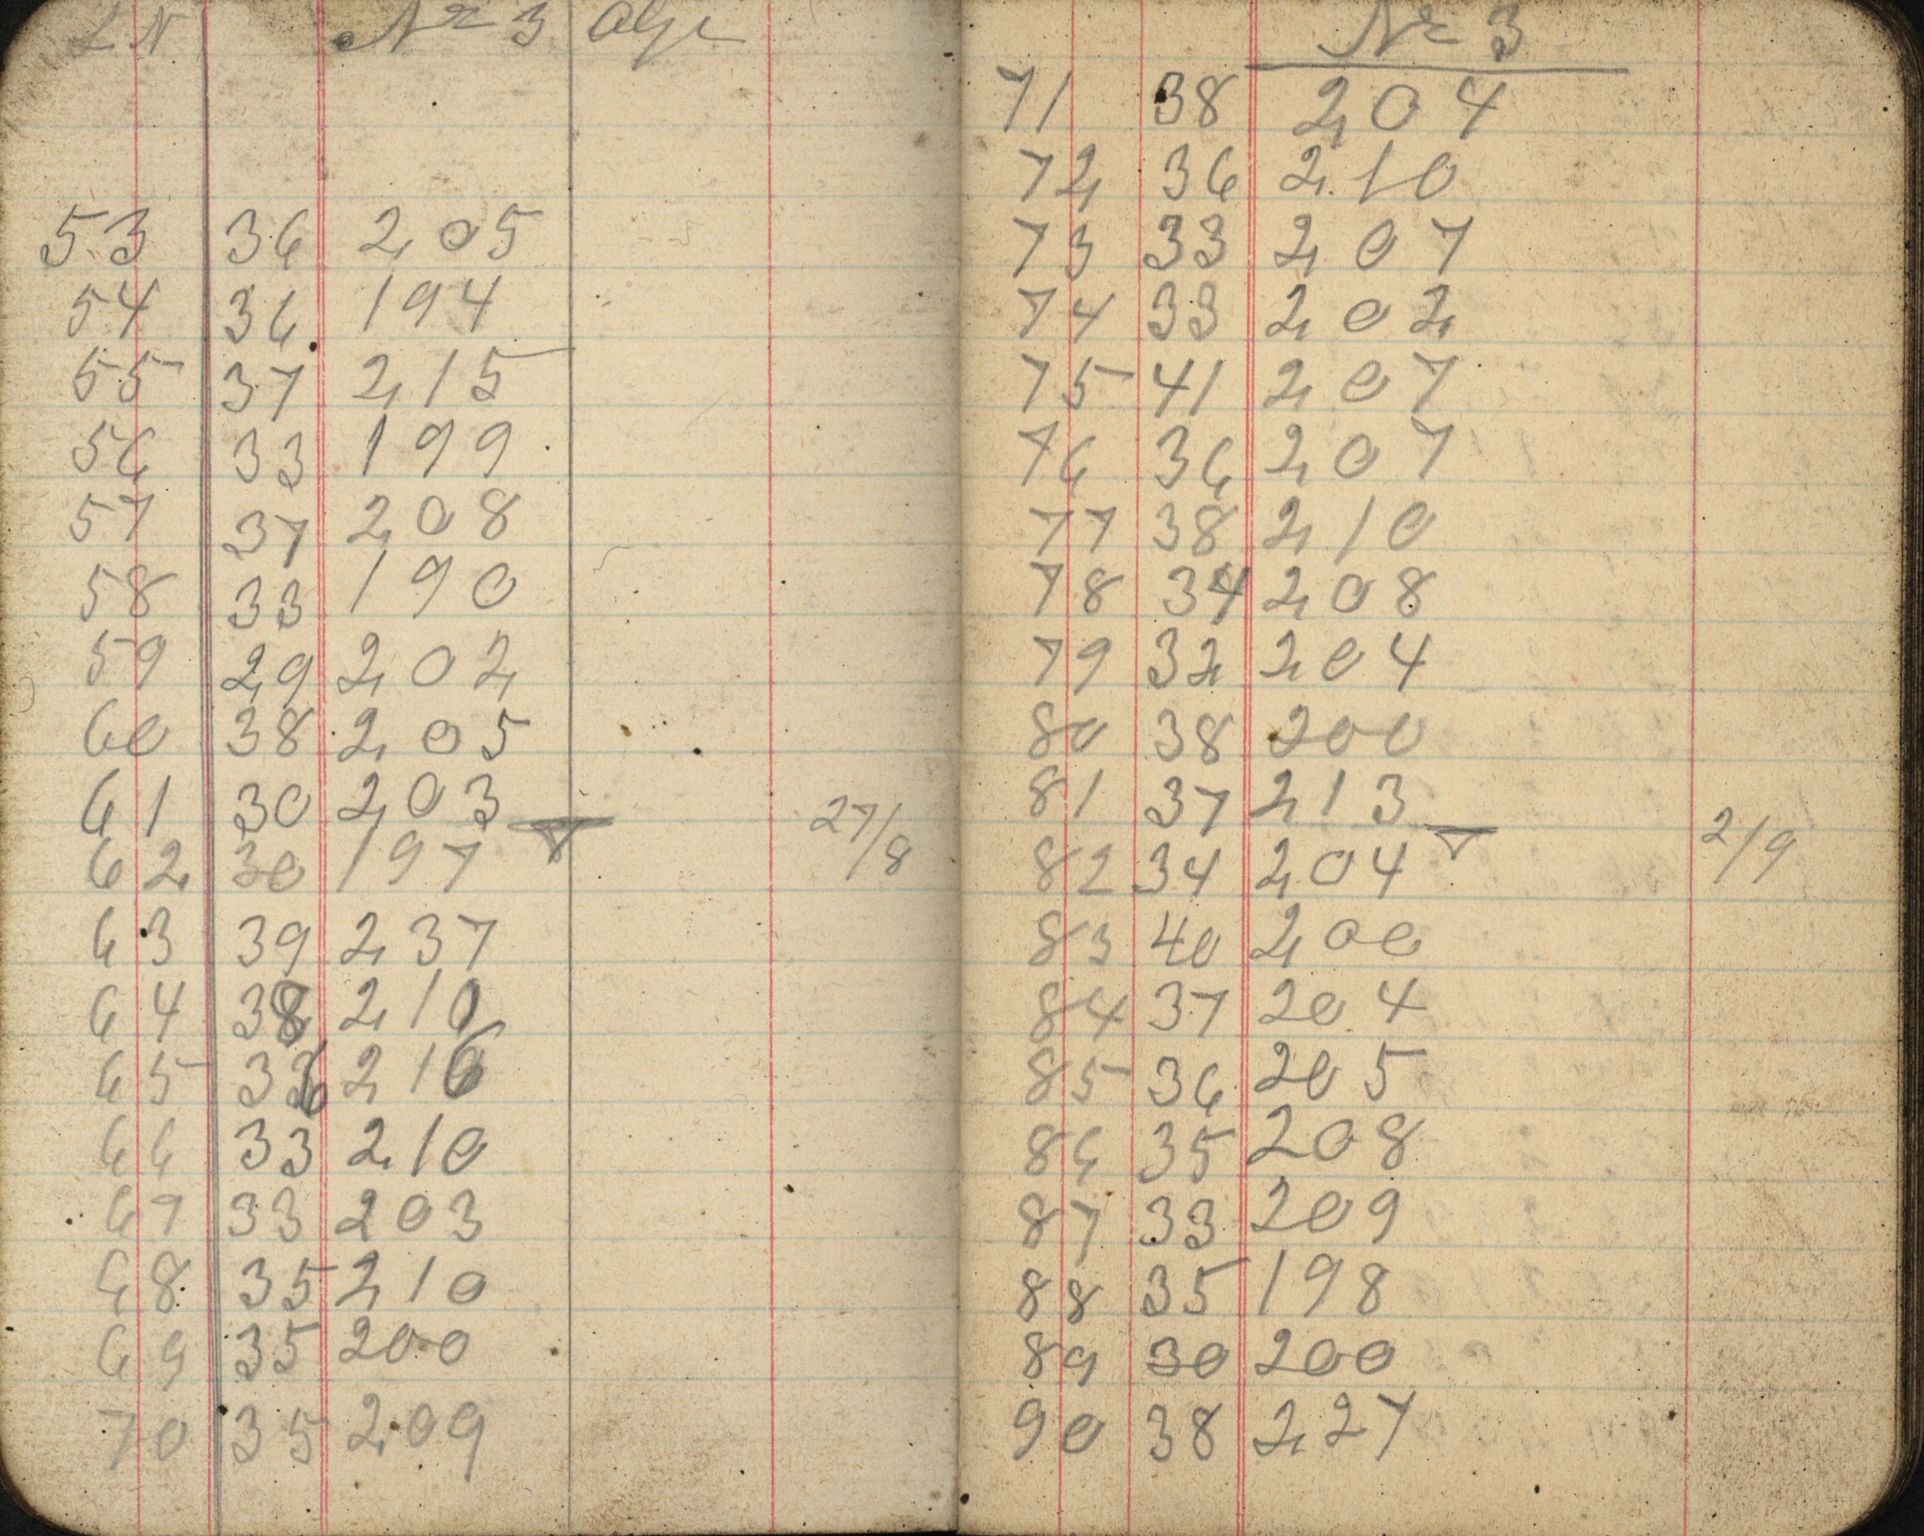 LN Nr 3 Olje
53 36 205
54 36 194
55 37 215
56 33 199
57 37 208
58 33 190
59 29 202
60 38 205
61 30 203
27/8
62 30 197
63 39 237
64 38 210
65 36 216
66 33 210
67 33 203
68 35 210
69 35 200
70 35 209
Nr 3
71 38 204
72 36 210
73 33 207
74 33 202
75 41 207
76 36 207
77 38 210
78 34 208
79 32 204
80 38 200
81 37 213
2/9
82 34 204
83 40 200
84 37 204
85 36 205
86 35 208
87 33 209
88 35 198
89 30 200
90 38 227